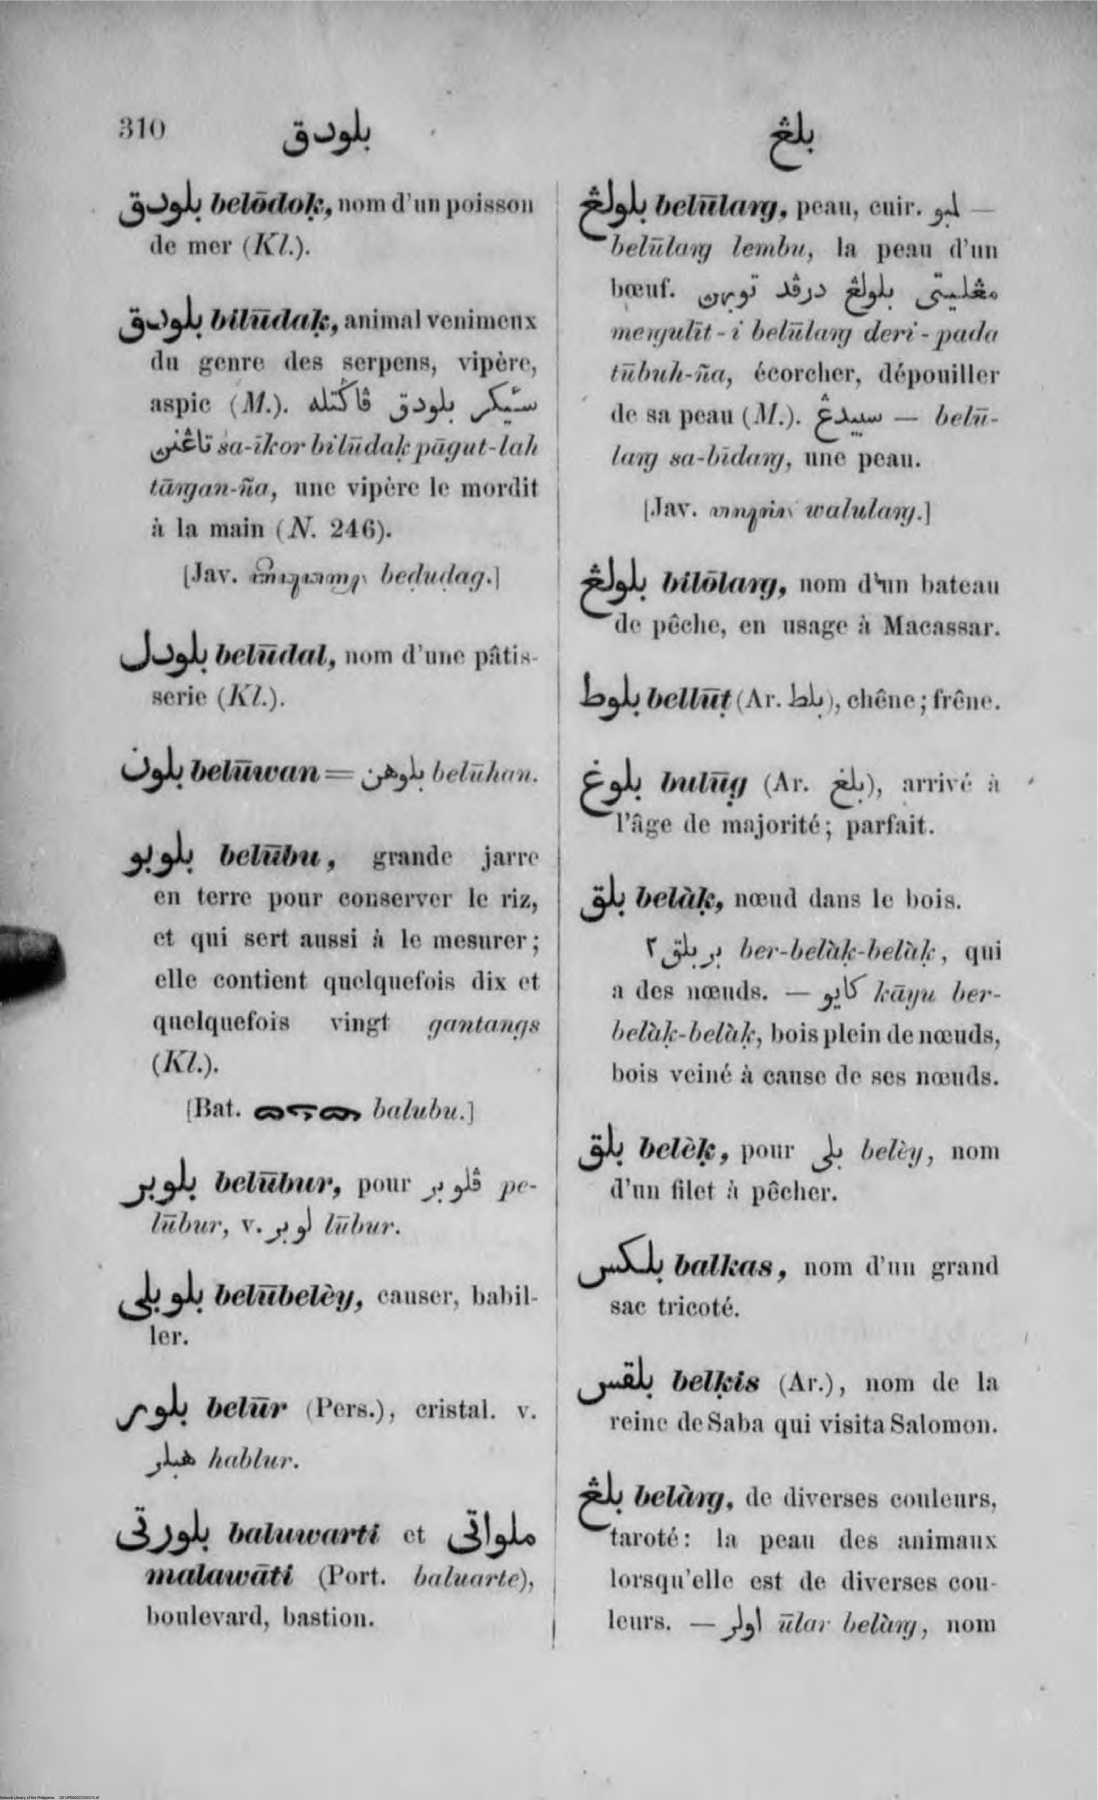 310 بلودق بلڠ
بلودق belōdoḳ, nom d'un poisson
de mer (Kl.).
بلودق bilūdaḳ, animal venimeux
du genre des serpens, vipère,
aspic (M.). سيكر بلودق
sa-īkor bilūdaḳ pāgut-lah
tāngan-ña, une vipère le mordit
à la main (N. 246).
[Jav. beḍuḍag.]
بلودل belūdal, nom d'une pâtis-
serie (Kl.).
بلون belūwan = بلوهن belūhan.
بلوبو belūbu, grande jarre
en terre pour conserver le riz,
et qui sert aussi à le mesurer;
elle contient quelquefois dix et
quelquefois vingt gantangs
(Kl.).
[Bat. balubu.]
بلوبر belūbur, pour ڤلوبر pe-
lūbur, v. لوبر lūbur.
بلوبلي belūbelèy, causer, babil-
ler.
بلور belūr (Pers.), cristal. v.
هبلر hablur.
بلورتي baluwarti et ملواتي
malawāti (Port. baluarte),
boulevard, bastion.
بلولڠ belūlang, peau, cuir. لمبو —
belūlang lembu, la peau d'un
bœuf. مڠليتي بلولڠ درڤد توبهن
mengulīt-i belūlang deri-pada
tūbuh-ña, écorcher, dépouiller
de sa peau (M.). سبيدڠ — belū-
lang sa-bīdang, une peau.
[Jav. walulang.]
بلولڠ bilōlang, nom d'un bateau
de pêche, en usage à Macassar.
بلوط bellūṭ (Ar. بلط), chêne; frêne.
بلوغ bulūg (Ar. بلغ), arrivé à
l'âge de majorité; parfait.
بلق belàḳ, nœud dans le bois.
بربلق٢ ber-belàḳ-belàḳ, qui
a des nœuds. — كايو kāyu ber-
belàḳ-belàḳ, bois plein de nœuds,
bois veiné à cause de ses nœuds.
بلق belèḳ, pour بلي belèy, nom
d'un filet à pêcher.
بلكس balkas, nom d'un grand
sac tricoté.
بلقس belḳis (Ar.), nom de la
reine de Saba qui visita Salomon.
بلڠ belàng, de diverses couleurs,
taroté: la peau des animaux
lorsqu'elle est de diverses cou-
leurs. — اولر ūlar belàng, nom